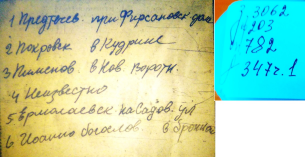 1 Предтечев. при Фирсановск доме
2 Покровск в Кудрине
3 Пименов. в Нов. Воротн.
4 Неизвестно
5 Ермолаевск. на Садов. ул
6 Иоанно богослов. в Бронно
ф 3062
203
782
347 ч. 1